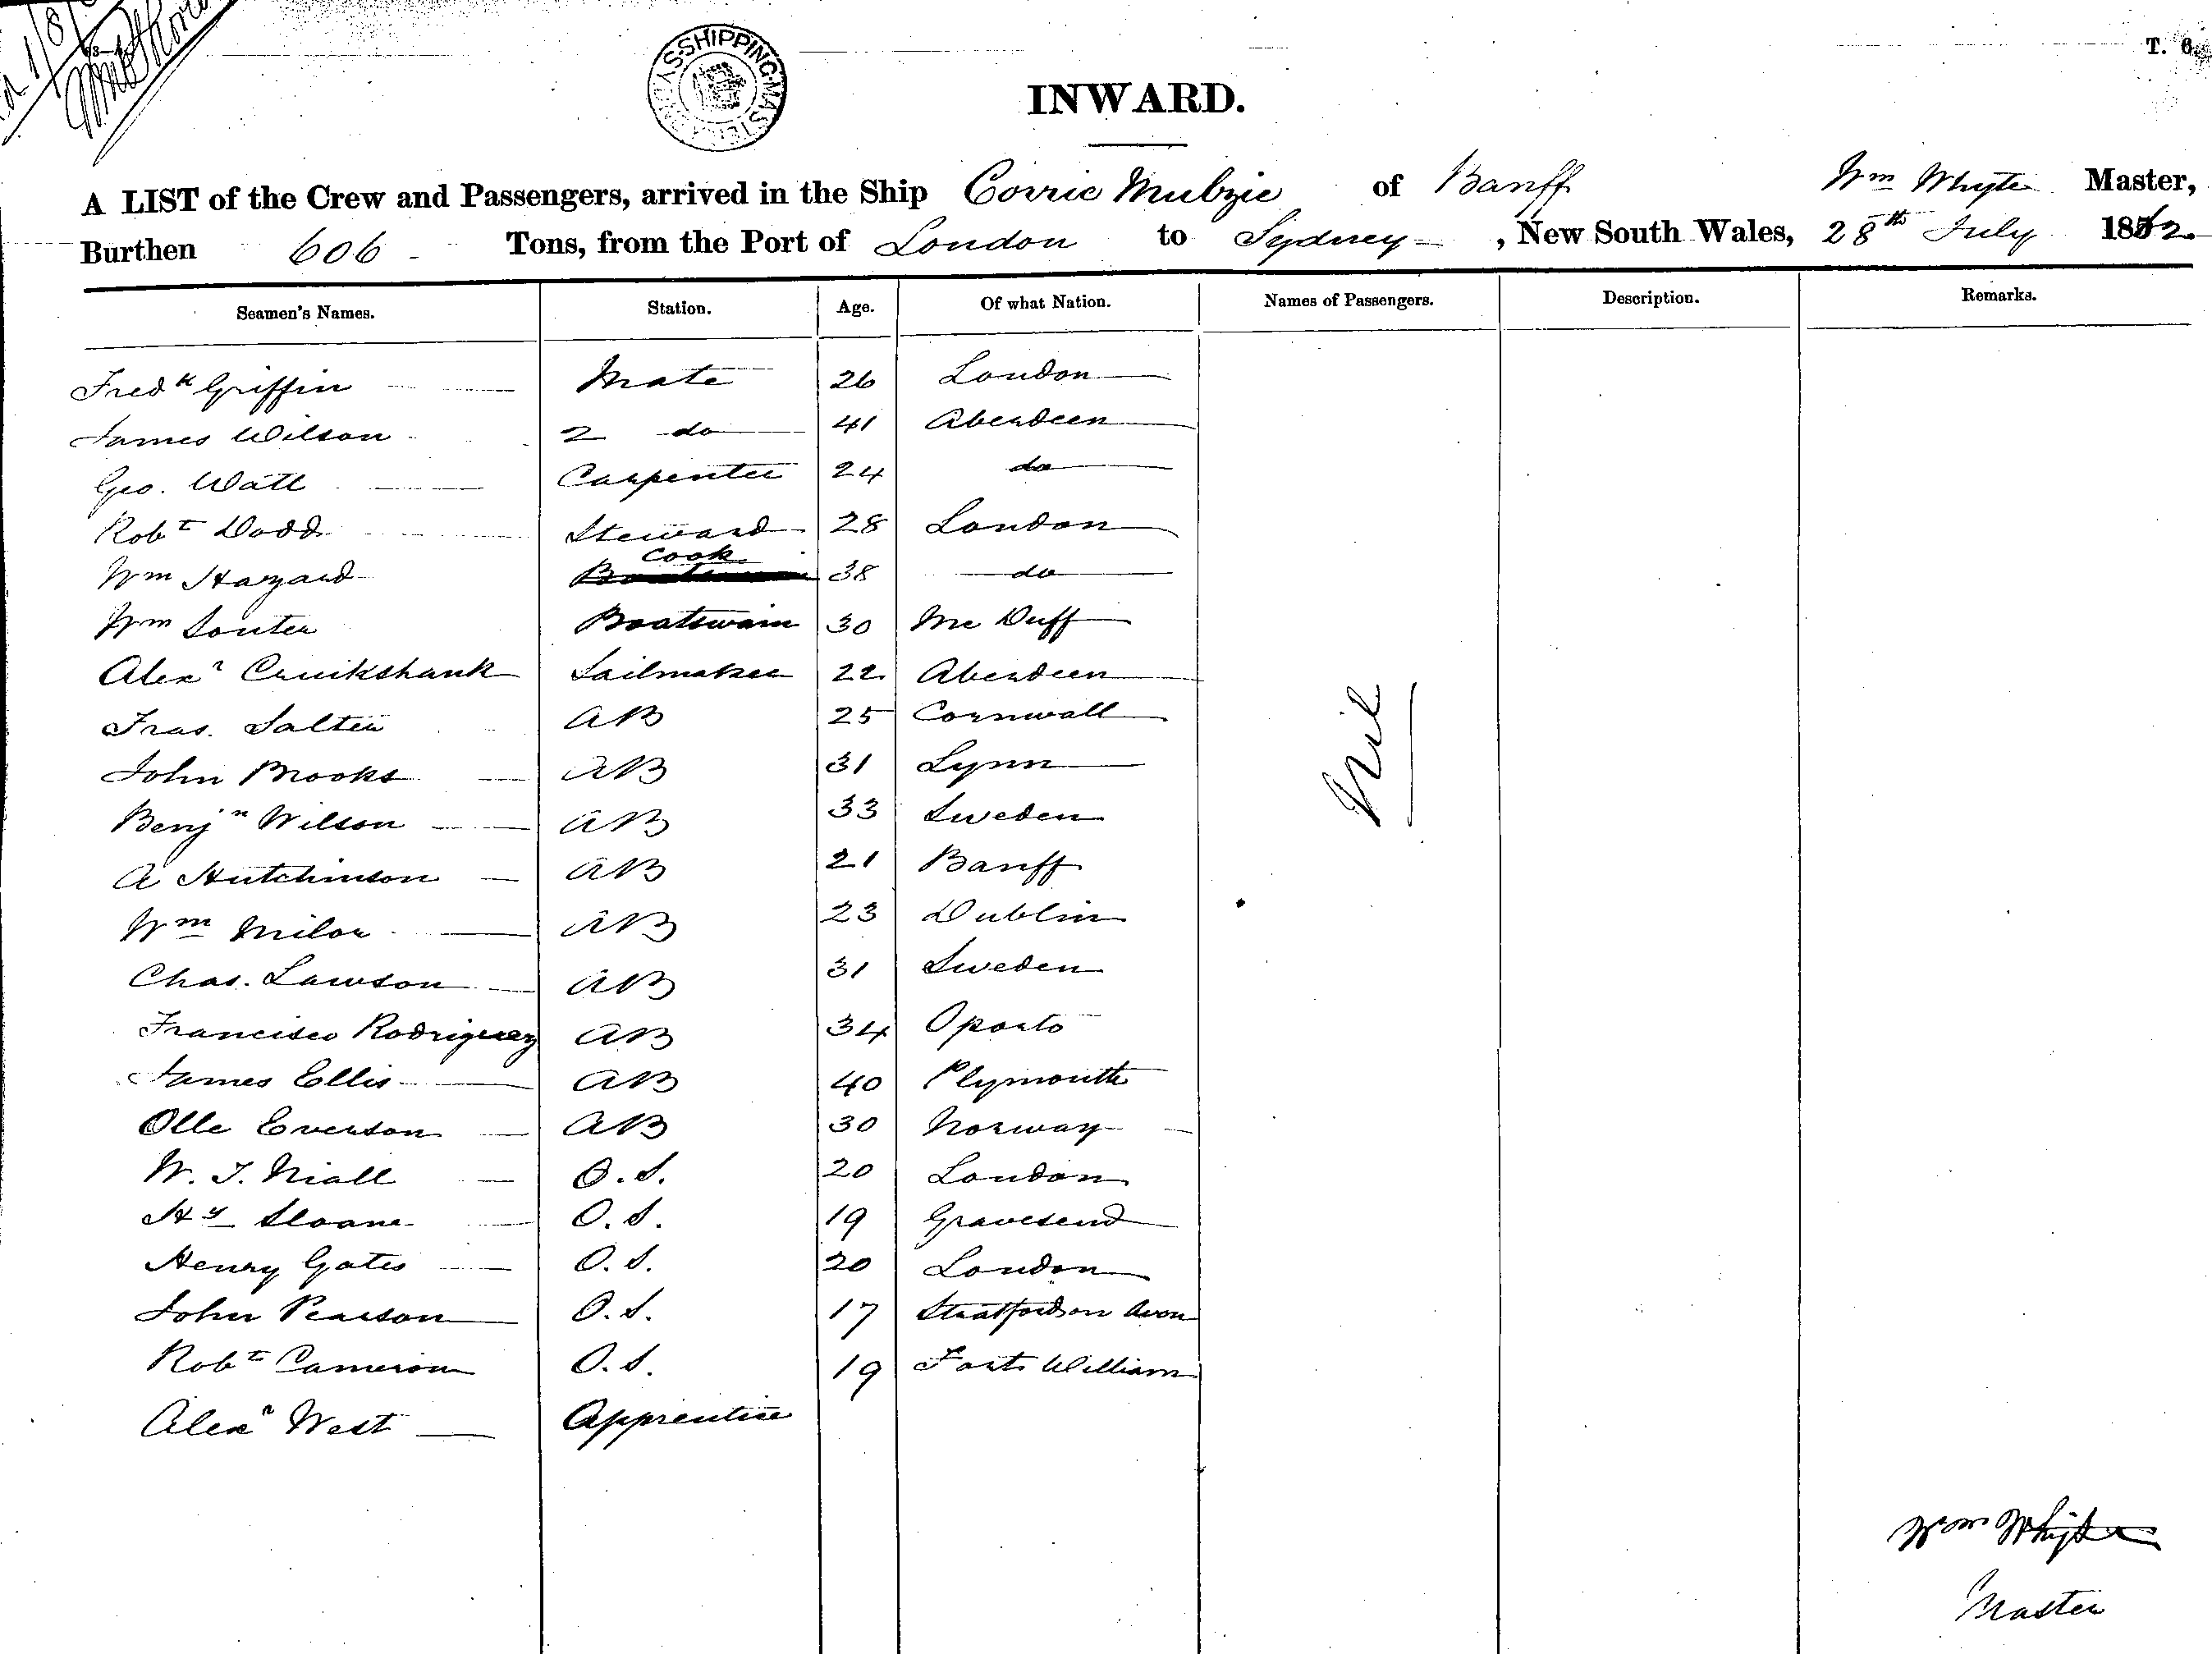 T. 6
SHIPPING MASTER
INWARD.
A LIST of the Crew and Passengers, arrived in the Ship Corrie Mulzie of Banff Wm Whyte Master,
Burthen 606 Tons, from the Port of London to Sydney, New South Wales, 28th July 1862
Seamen's Names. Station. Age. Of what Nation. Names of Passengers. Description. Remarks.
Fredk Griffin Mate 26 London
James Wilson 2 do 41 Aberdeen
Geo. Watt Carpenter 24 do
Robt Dodd Steward 28 London
Wm Hazard Cook 38 do
Wm Souter Boatswain 30 Mc Duff
Alexr Cruikshank Sailmaker 22 Aberdeen
Fras. Salter AB 25 Cornwall
Nil
John Brooks AB 31 Lynn
Benjn Wilson AB 33 Sweden
A Hutchinson AB 21 Banff
Wm Milor AB 23 Dublin
Chas. Lawson AB 31 Sweden
Francisco Rodriguez AB 34 Oporto
James Ellis AB 40 Plymouth
Olle Everson AB 30 Norway
W. J. Niall O.S. 20 London
Hy Sloane O.S. 19 Gravesend
Henry Gates O.S. 20 London
John Pearson O.S. 17 Stratford on Avon
Robt Cameron O.S. 19 Fort William
Alexr West Apprentice
Wm Whyte
Master